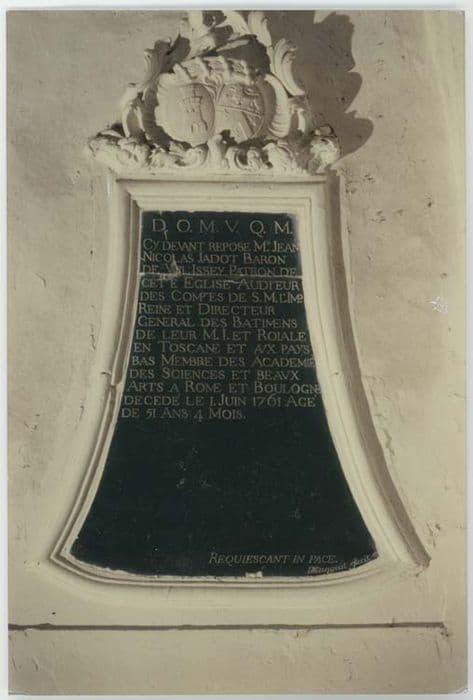 D. O. M. V. Q. M.
CY DEVANT REPOSE MR. JEAN
NICOLAS JADOT BARON
DE VILLISSEY PATRON DE
CETTE EGLISE AUDITEUR
DES COMPTES DE S. M. L'IMP.
REINE ET DIRECTEUR
GENERAL DES BATIMENS
DE LEUR M. I. ET ROIALE
EN TOSCANE ET AUX PAYS
BAS MEMBRE DES ACADEMIE
DES SCIENCES ET BEAUX
ARTS A ROME ET BOULOGNE
DECEDE LE 1. JUIN 1761 AGE
DE 51 ANS 4 MOIS.
REQUIESCANT IN PACE.
fecit